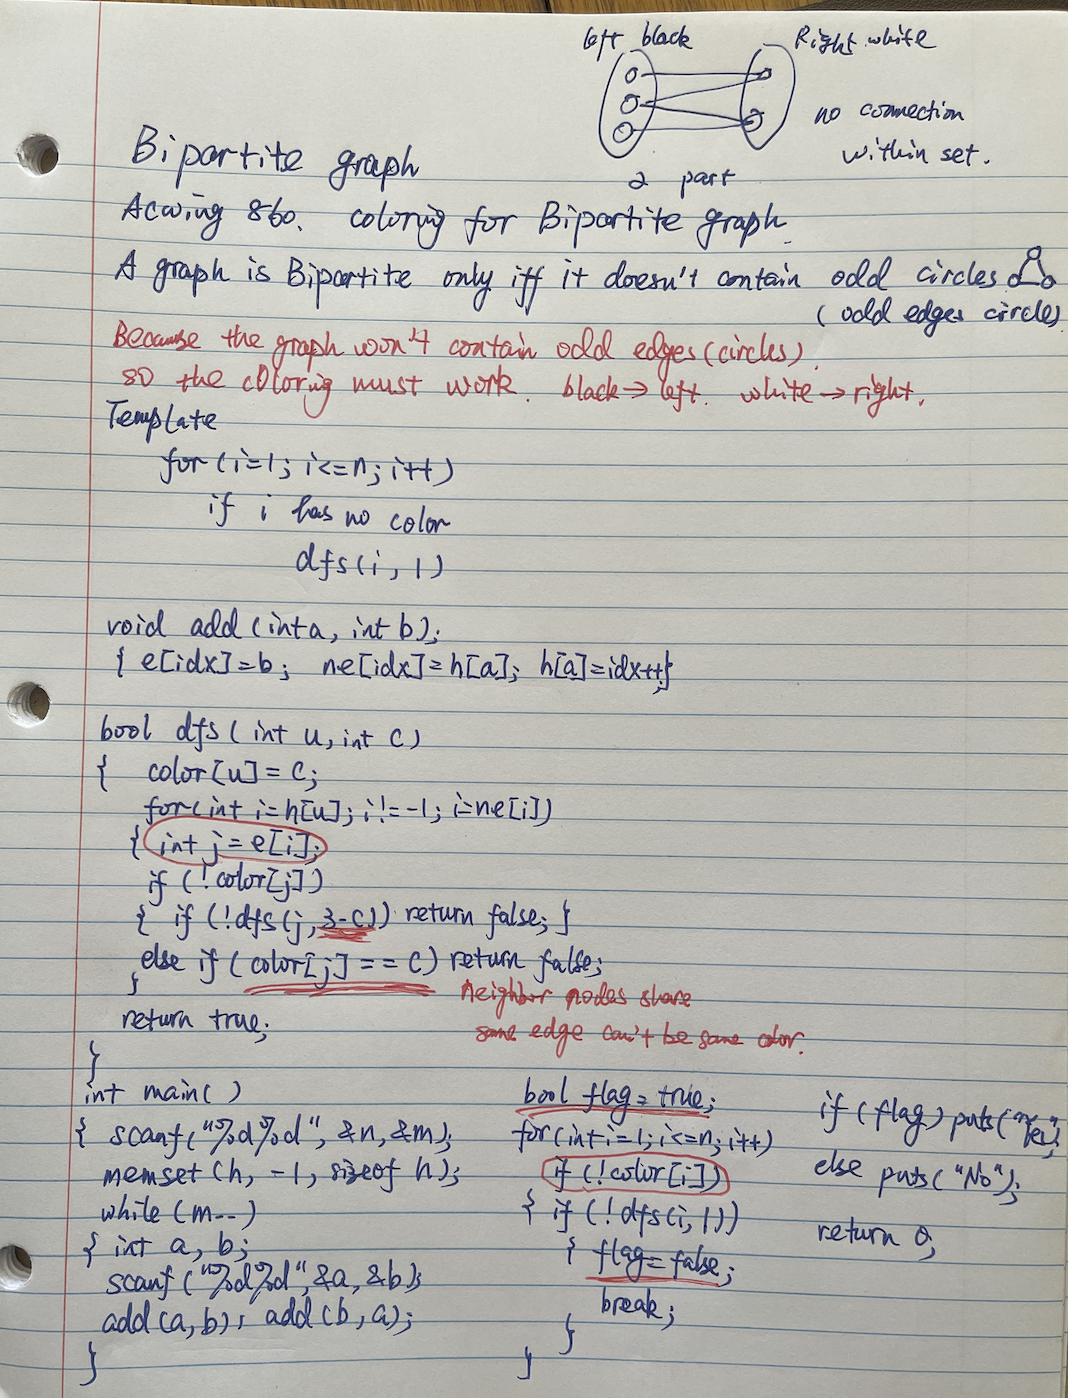 left black
Right white
no connection
within set.
2 part
Bipartite graph
Acwing 860. coloring for Bipartite graph.
A graph is Bipartite only iff it doesn't contain odd circles
(odd edges circle)
Because the graph won't contain odd edges (circles).
so the coloring must work. black → left. white → right.
Template
for (i=1; i<=n; i++)
if i has no color
dfs(i, 1)
void add (int a, int b);
{ e[idx]=b; ne[idx]=h[a]; h[a]=idx++;}
bool dfs (int u, int c)
{ color[u] = c;
for(int i=h[u]; i!=-1; i=ne[i])
{ int j = e[i];
if (!color[j])
{ if (!dfs(j, 3-c)) return false; }
else if (color[j] == c) return false;
}
Neighbor nodes share
same edge can't be same color.
return true;
}
int main( )
{ scanf("%d%d", &n, &m);
memset (h, -1, sizeof h);
while (m--)
{ int a, b;
scanf("%d%d", &a, &b);
add (a, b); add (b, a);
}
bool flag = true;
for(int i=1; i<=n; i++)
if (!color[i])
{ if (!dfs(i, 1))
{ flag = false;
break;
}
}
if (flag) puts("Yes");
else puts("No");
return 0;